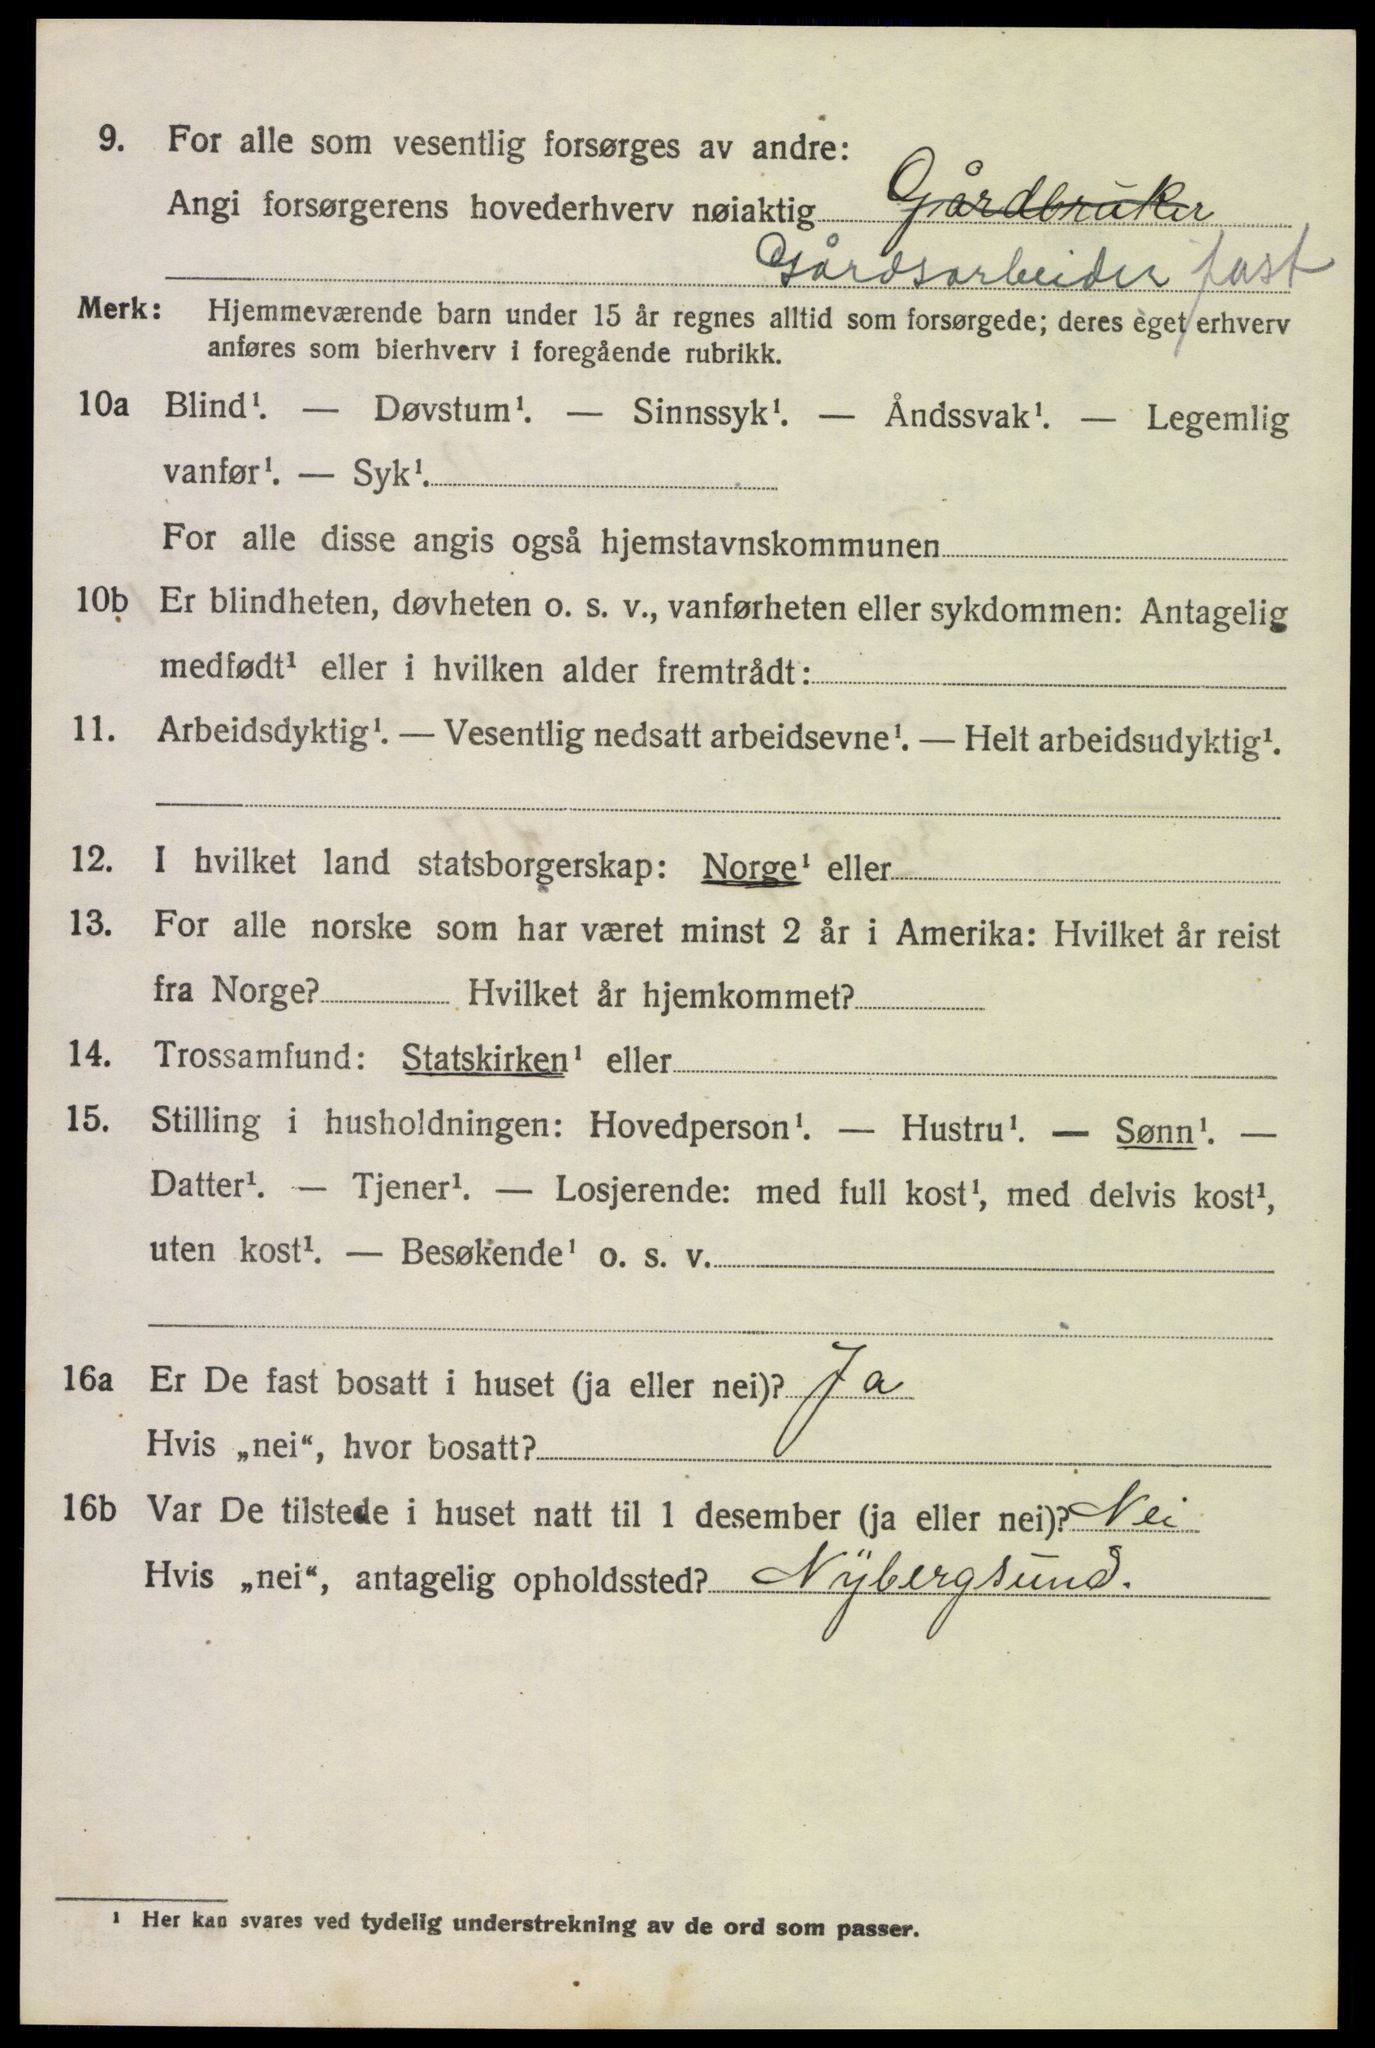 9. For alle som vesentlig forsørges av andre:
Angi forsørgerens hovederhverv nøiaktig Gårdbruker
Gårdsarbeider fast
Merk: Hjemmeværende barn under 15 år regnes alltid som forsørgede; deres eget erhverv
anføres som bierhverv i foregående rubrikk.
10a Blind¹. — Døvstum¹. — Sinnssyk¹. — Åndssvak¹. — Legemlig
vanfør¹. — Syk¹.
For alle disse angis også hjemstavnskommunen
10b Er blindheten, døvheten o. s. v., vanførheten eller sykdommen: Antagelig
medfødt¹ eller i hvilken alder fremtrådt:
11. Arbeidsdyktig¹. — Vesentlig nedsatt arbeidsevne¹. — Helt arbeidsudyktig¹.
12. I hvilket land statsborgerskap: Norge¹ eller
13. For alle norske som har været minst 2 år i Amerika: Hvilket år reist
fra Norge? Hvilket år hjemkommet?
14. Trossamfund: Statskirken¹ eller
15. Stilling i husholdningen: Hovedperson¹. — Hustru¹. — Sønn¹. —
Datter¹. — Tjener¹. — Losjerende: med full kost¹, med delvis kost¹,
uten kost¹. — Besøkende¹ o. s. v.
16a Er De fast bosatt i huset (ja eller nei)? Ja
Hvis „nei“, hvor bosatt?
16b Var De tilstede i huset natt til 1 desember (ja eller nei)? Nei
Hvis „nei“, antagelig opholdssted? Nÿbergsund.
¹ Her kan svares ved tydelig understrekning av de ord som passer.